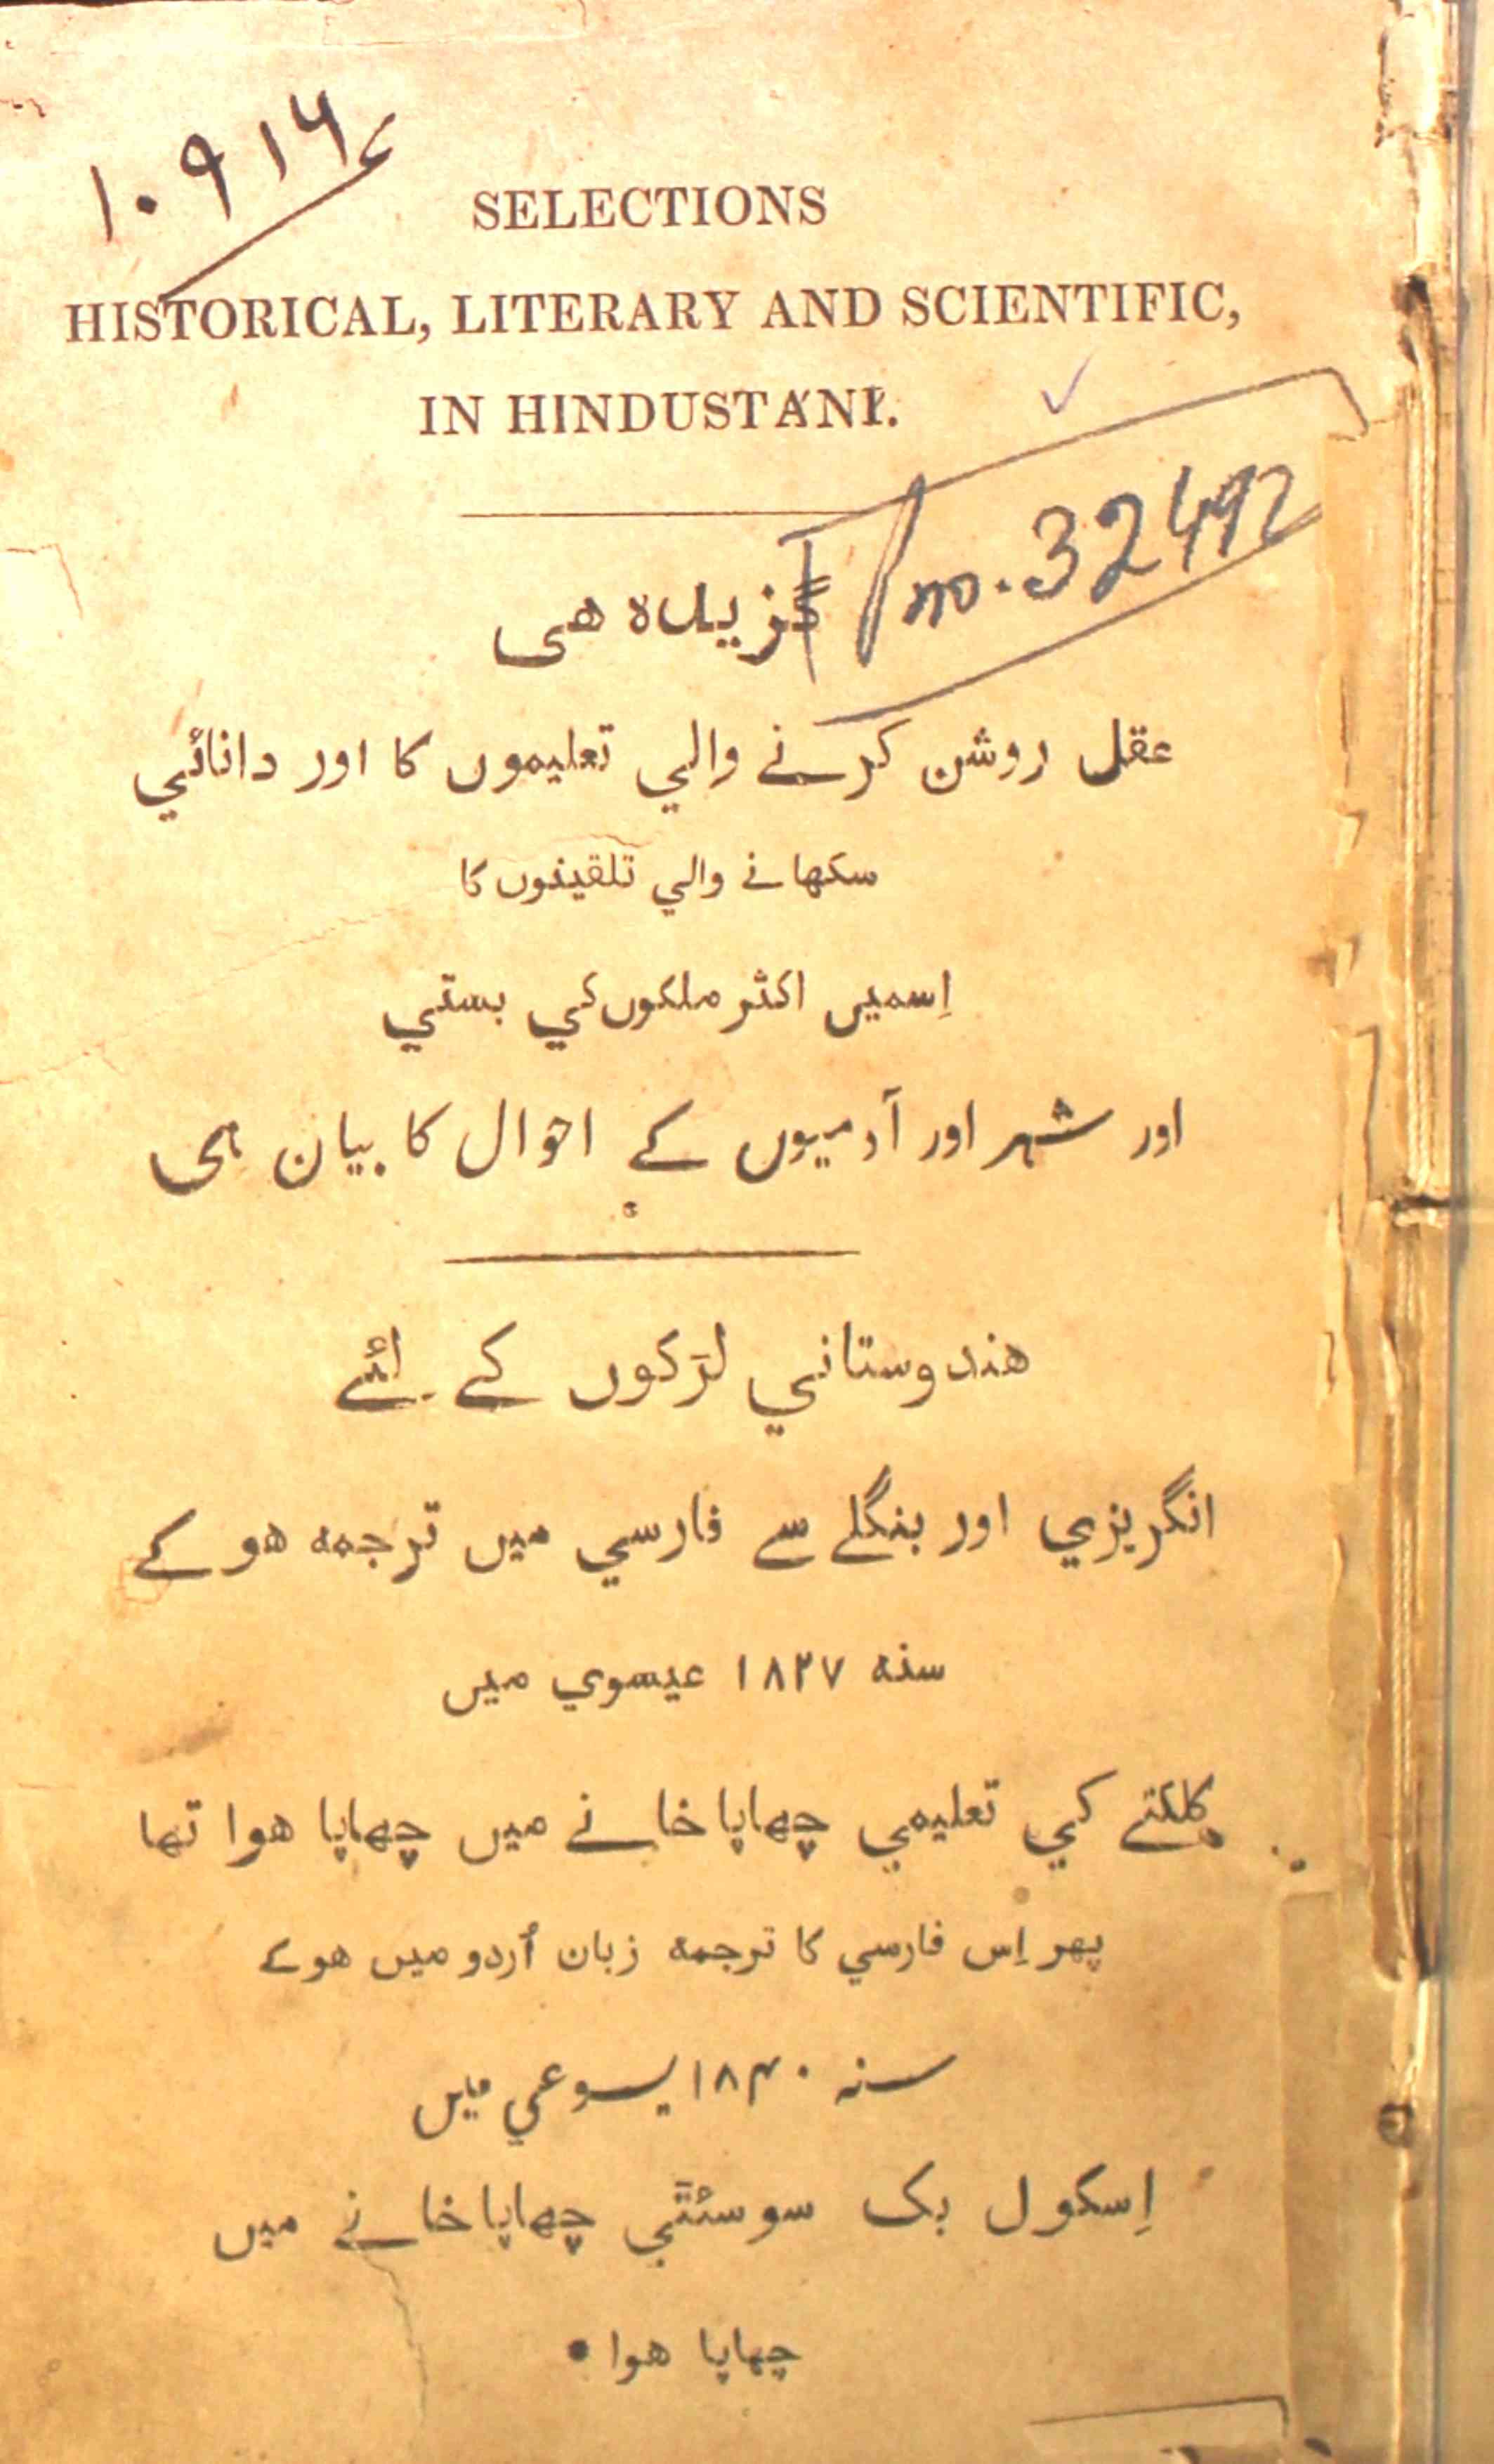 ۱۰۹۱۶ء
SELECTIONS
HISTORICAL, LITERARY AND SCIENTIFIC,
IN HINDUSTÁNÍ.
no. 32492
گزیدہ ھی
عقل روشن کرنے والي تعلیموں کا اور دانائي
سکھانے والي تلقینوں کا
اِسمیں اکثر ملکوں کي بستي
اور شہر اور آدمیوں کے احوال کا بیان ہی
ھندوستاني لڑکوں کے لئے
انگریزي اور بنگلے سے فارسي میں ترجمہ ھو کے
سنہ ۱۸۲۷ عیسوي میں
کلکتے کي تعلیمي چھاپا خانے میں چھاپا ھوا تھا
پھر اِس فارسي کا ترجمہ زبان اُردو میں ھو کے
سنہ ۱۸۴۰ یسوعي میں
اِسکول بک سوسئٹي چھاپا خانے میں
چھاپا ھوا •